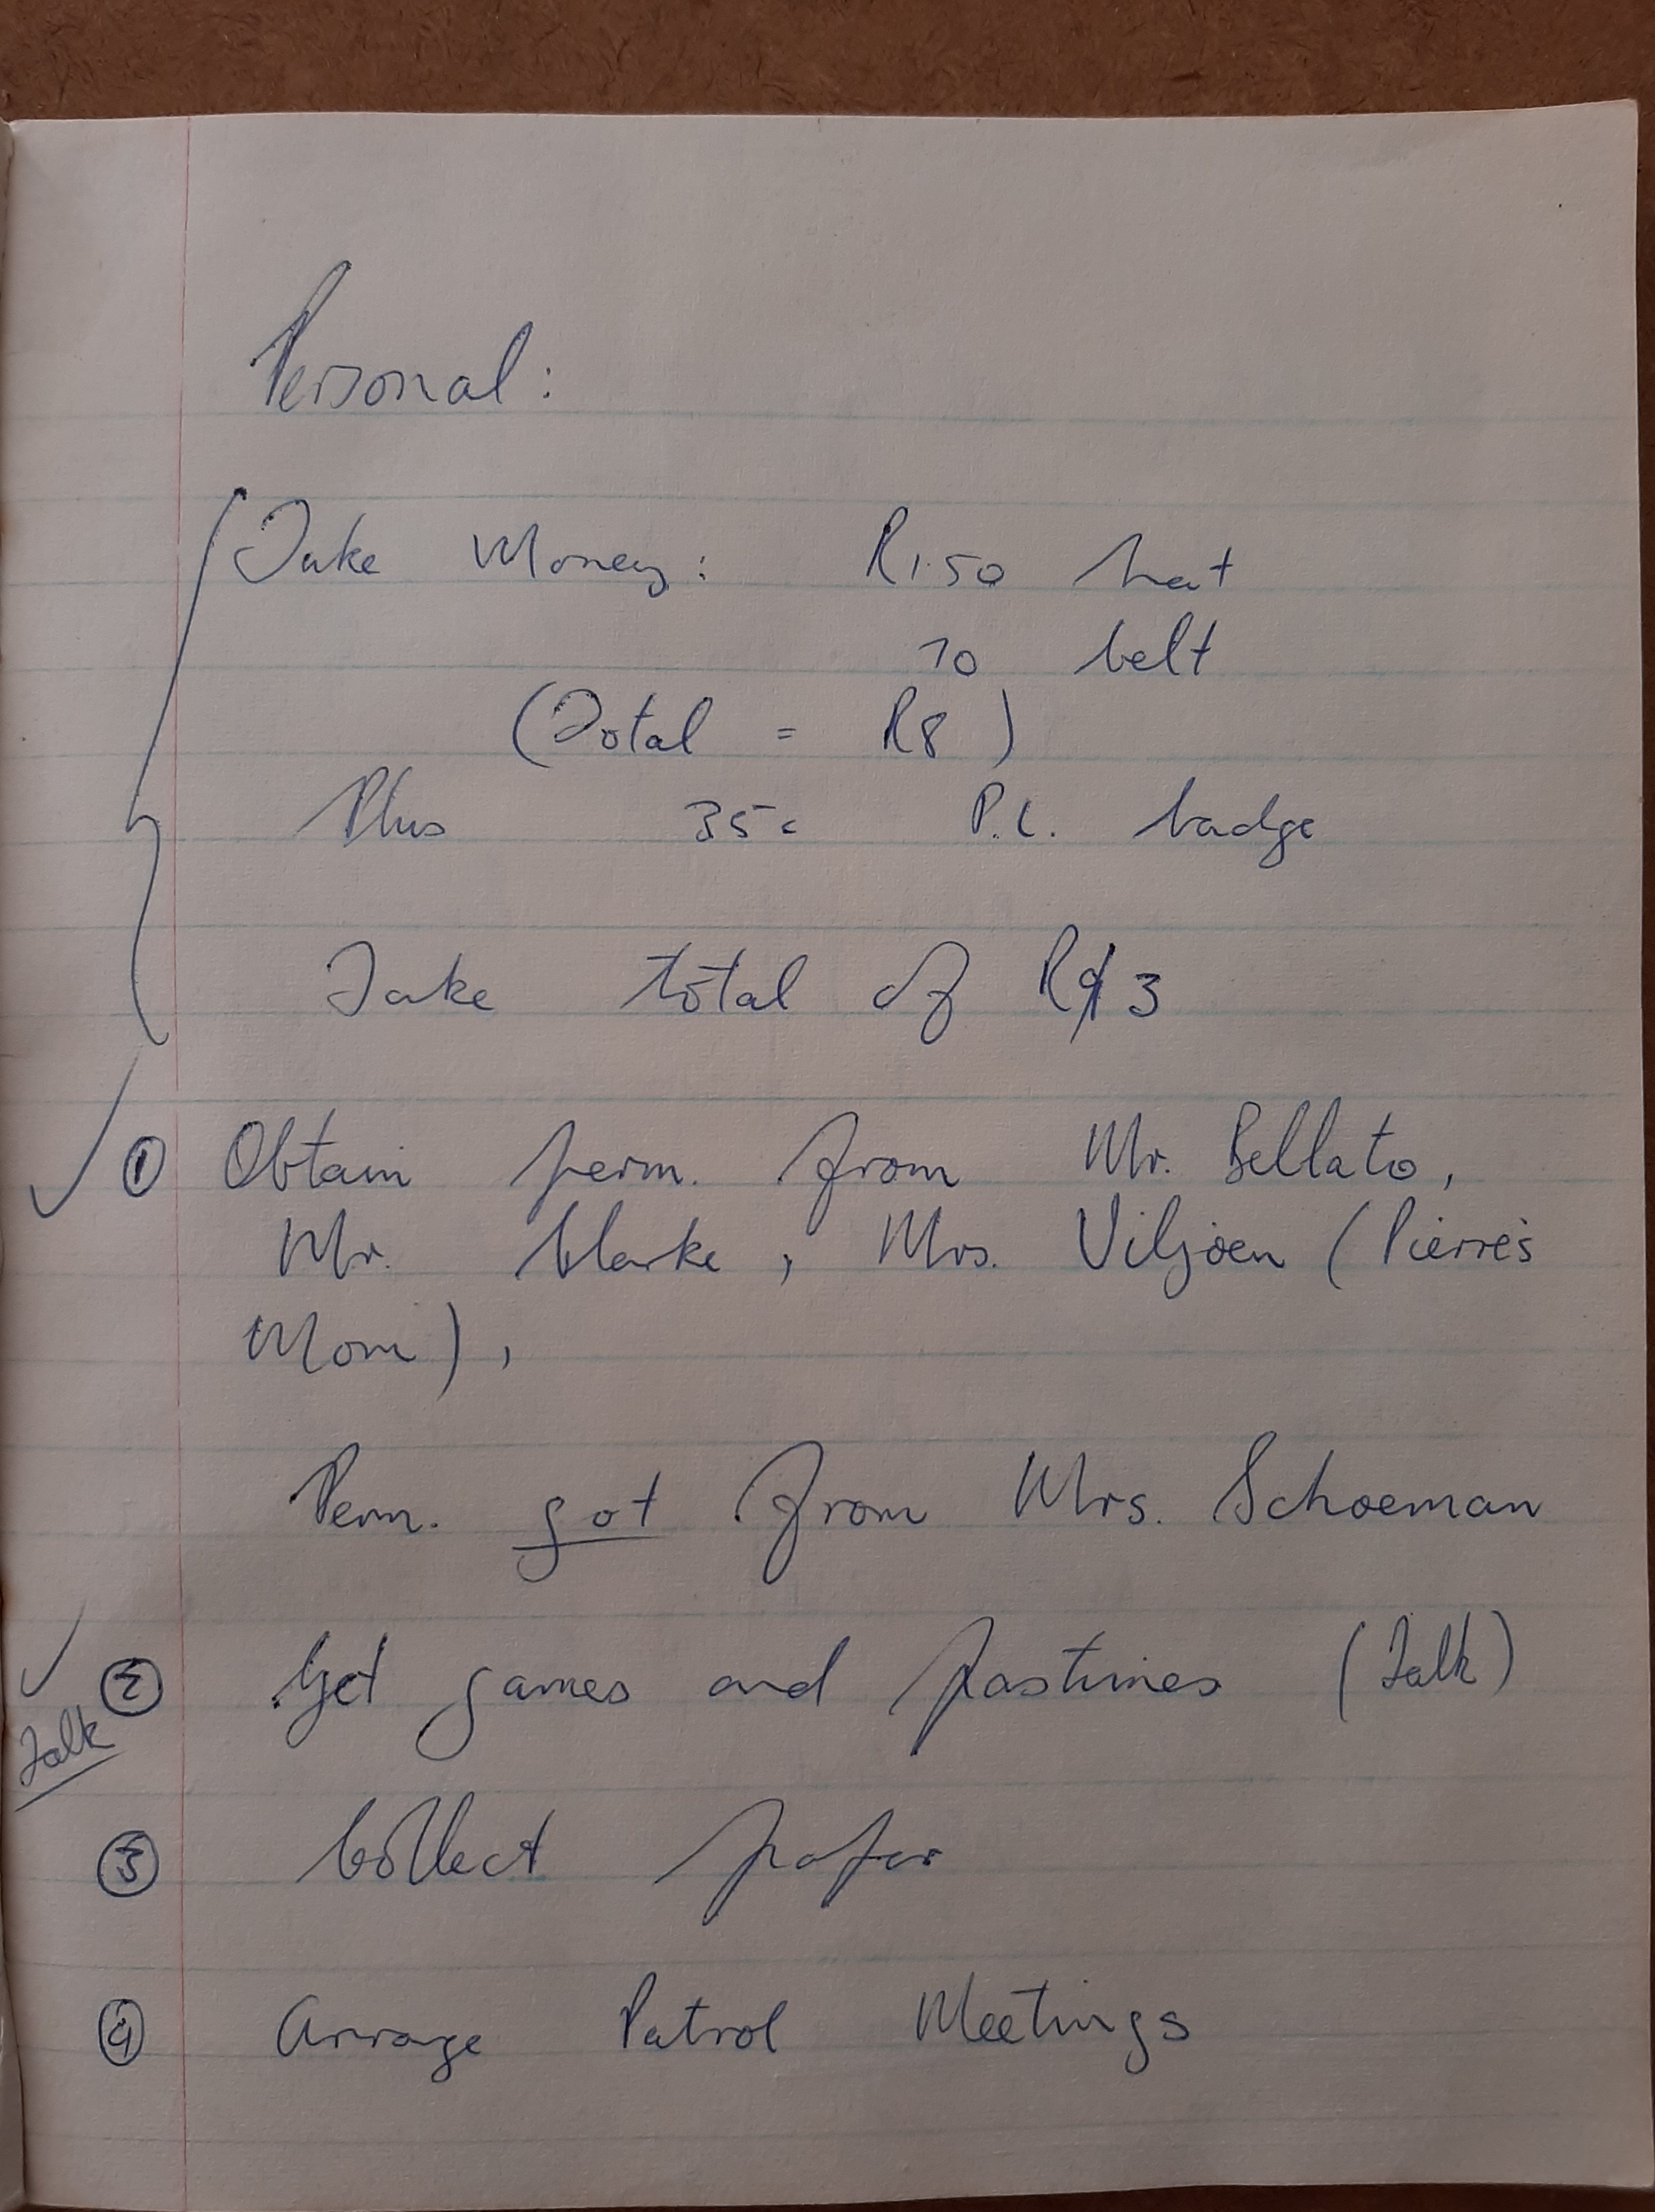 Personal:
Take Money: R1.50 hat
70 belt
(Total = R8)
Plus 35c P.L. badge
Take total of R9 3
① Obtain perm. from Mr. Bellato,
Mr. Clarke, Mrs. Viljoen (Pierre's
Mom),
Perm. got from Mrs. Schoeman
② Get games and pastimes (Talk)
Talk
③ Collect paper
④ Arrange Patrol Meetings